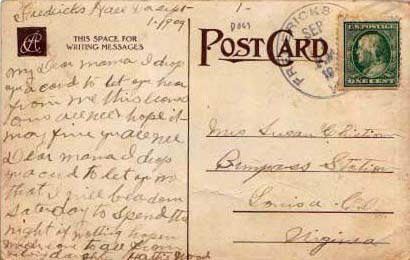 Fredericks Hall Va Sept
1-1909
1-
THIS SPACE FOR
WRITING MESSAGES
POST CARD
FREDERICKS
SEP
U.S. POSTAGE
ONE CENT
My Dear mama I drop
you a card to let you hear
from me this leaves
ous all well hope it
may fine you all well
Dear mama I drop
you a card to let you no
that I will be down
Saturday to Spend the
night if nothing hapen
love to all from
daughter Hattie Wood
Mrs Susan Christian
Bumpass Station
Louisa Co
Virginia